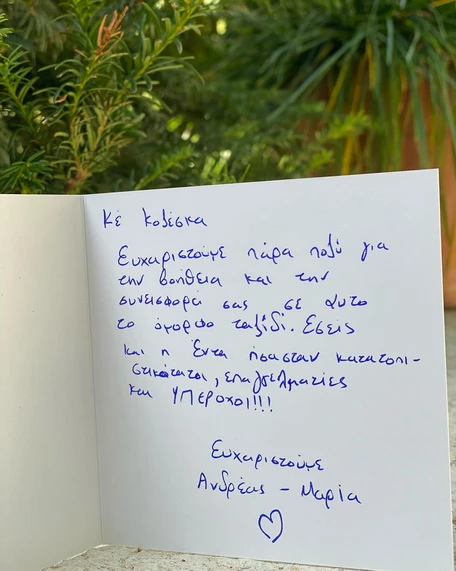 Κέ Κολέσκα
Ευχαριστούμε πάρα πολύ για
την βοήθεια και την
συνεισφορά σας σε αυτο
το όμορφο ταξίδι. Εσείς
και η Έντα ήσασταν κατατοπι-
στικότατοι, επαγγελματίες
και ΥΠΕΡΟΧΟΙ!!!
Ευχαριστούμε
Ανδρέας - Μαρία